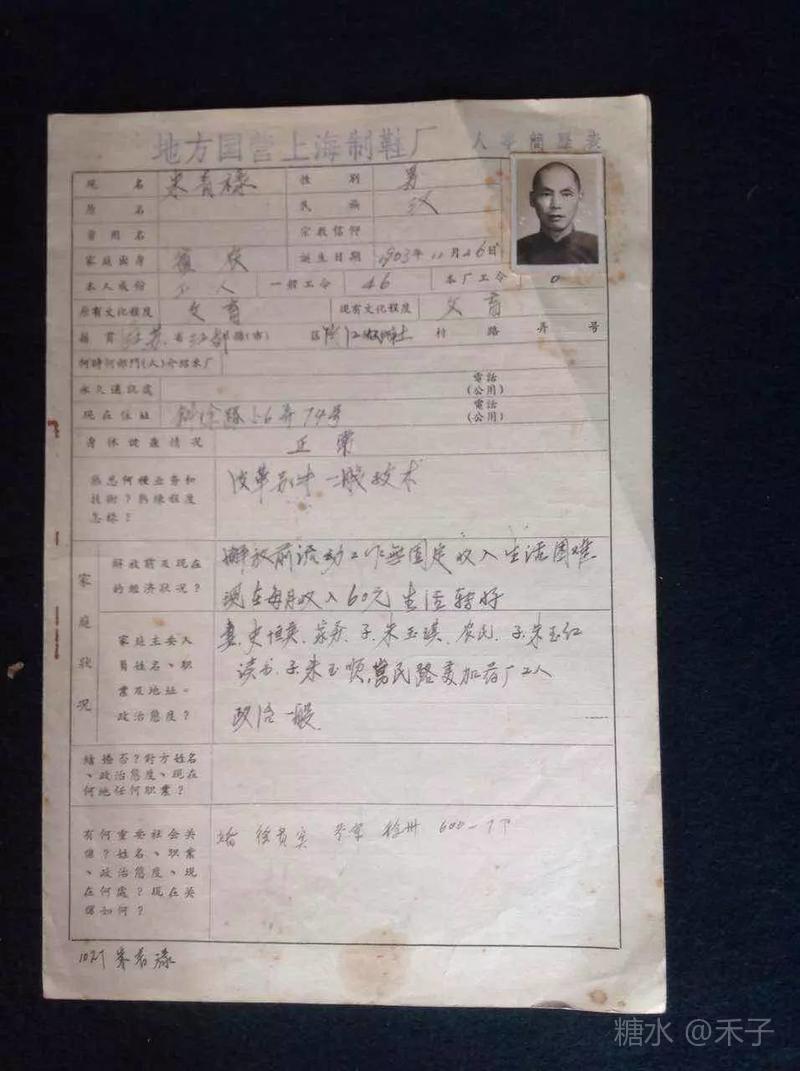 地方国营上海制鞋厂 人事簡歷表
現名 朱有祿 性別 男
原名 民族 汉
曾用名 宗教信仰
家庭出身 貧农 誕生日期 1903年11月26日
本人成份 工人 一般工令 46 本厂工令 0
原有文化程度 文盲 現有文化程度 文盲
籍貫 江苏省江都縣(市) 区 村 路 弄 号
何時何部門(人)介紹來厂
永久通訊處 電話(公用)
現在住址 斜徐路56弄74号 電話(公用)
身体健康情况 正常
熟悉何種业务和
技術？熟練程度
怎樣？
皮革另件一般技术
家庭狀况
解放前及現在
的經济狀况？
解放前流动工作無固定收入生活困难
现在每月收入60元生活转好
家庭主要人
員姓名、职
業及地址。
政治态度？
妻,史 家务,子,朱玉琪,农民,子,朱玉红
读书,子朱玉顺, 民路 药厂工人
政治一般
結婚否？对方姓名
、政治态度、現在
何地任何职業？
有何重要社会关
係？姓名、职業
、政治态度、現
在何處？現在关
係如何？
徐贵 徐州
朱有祿
糖水 @禾子